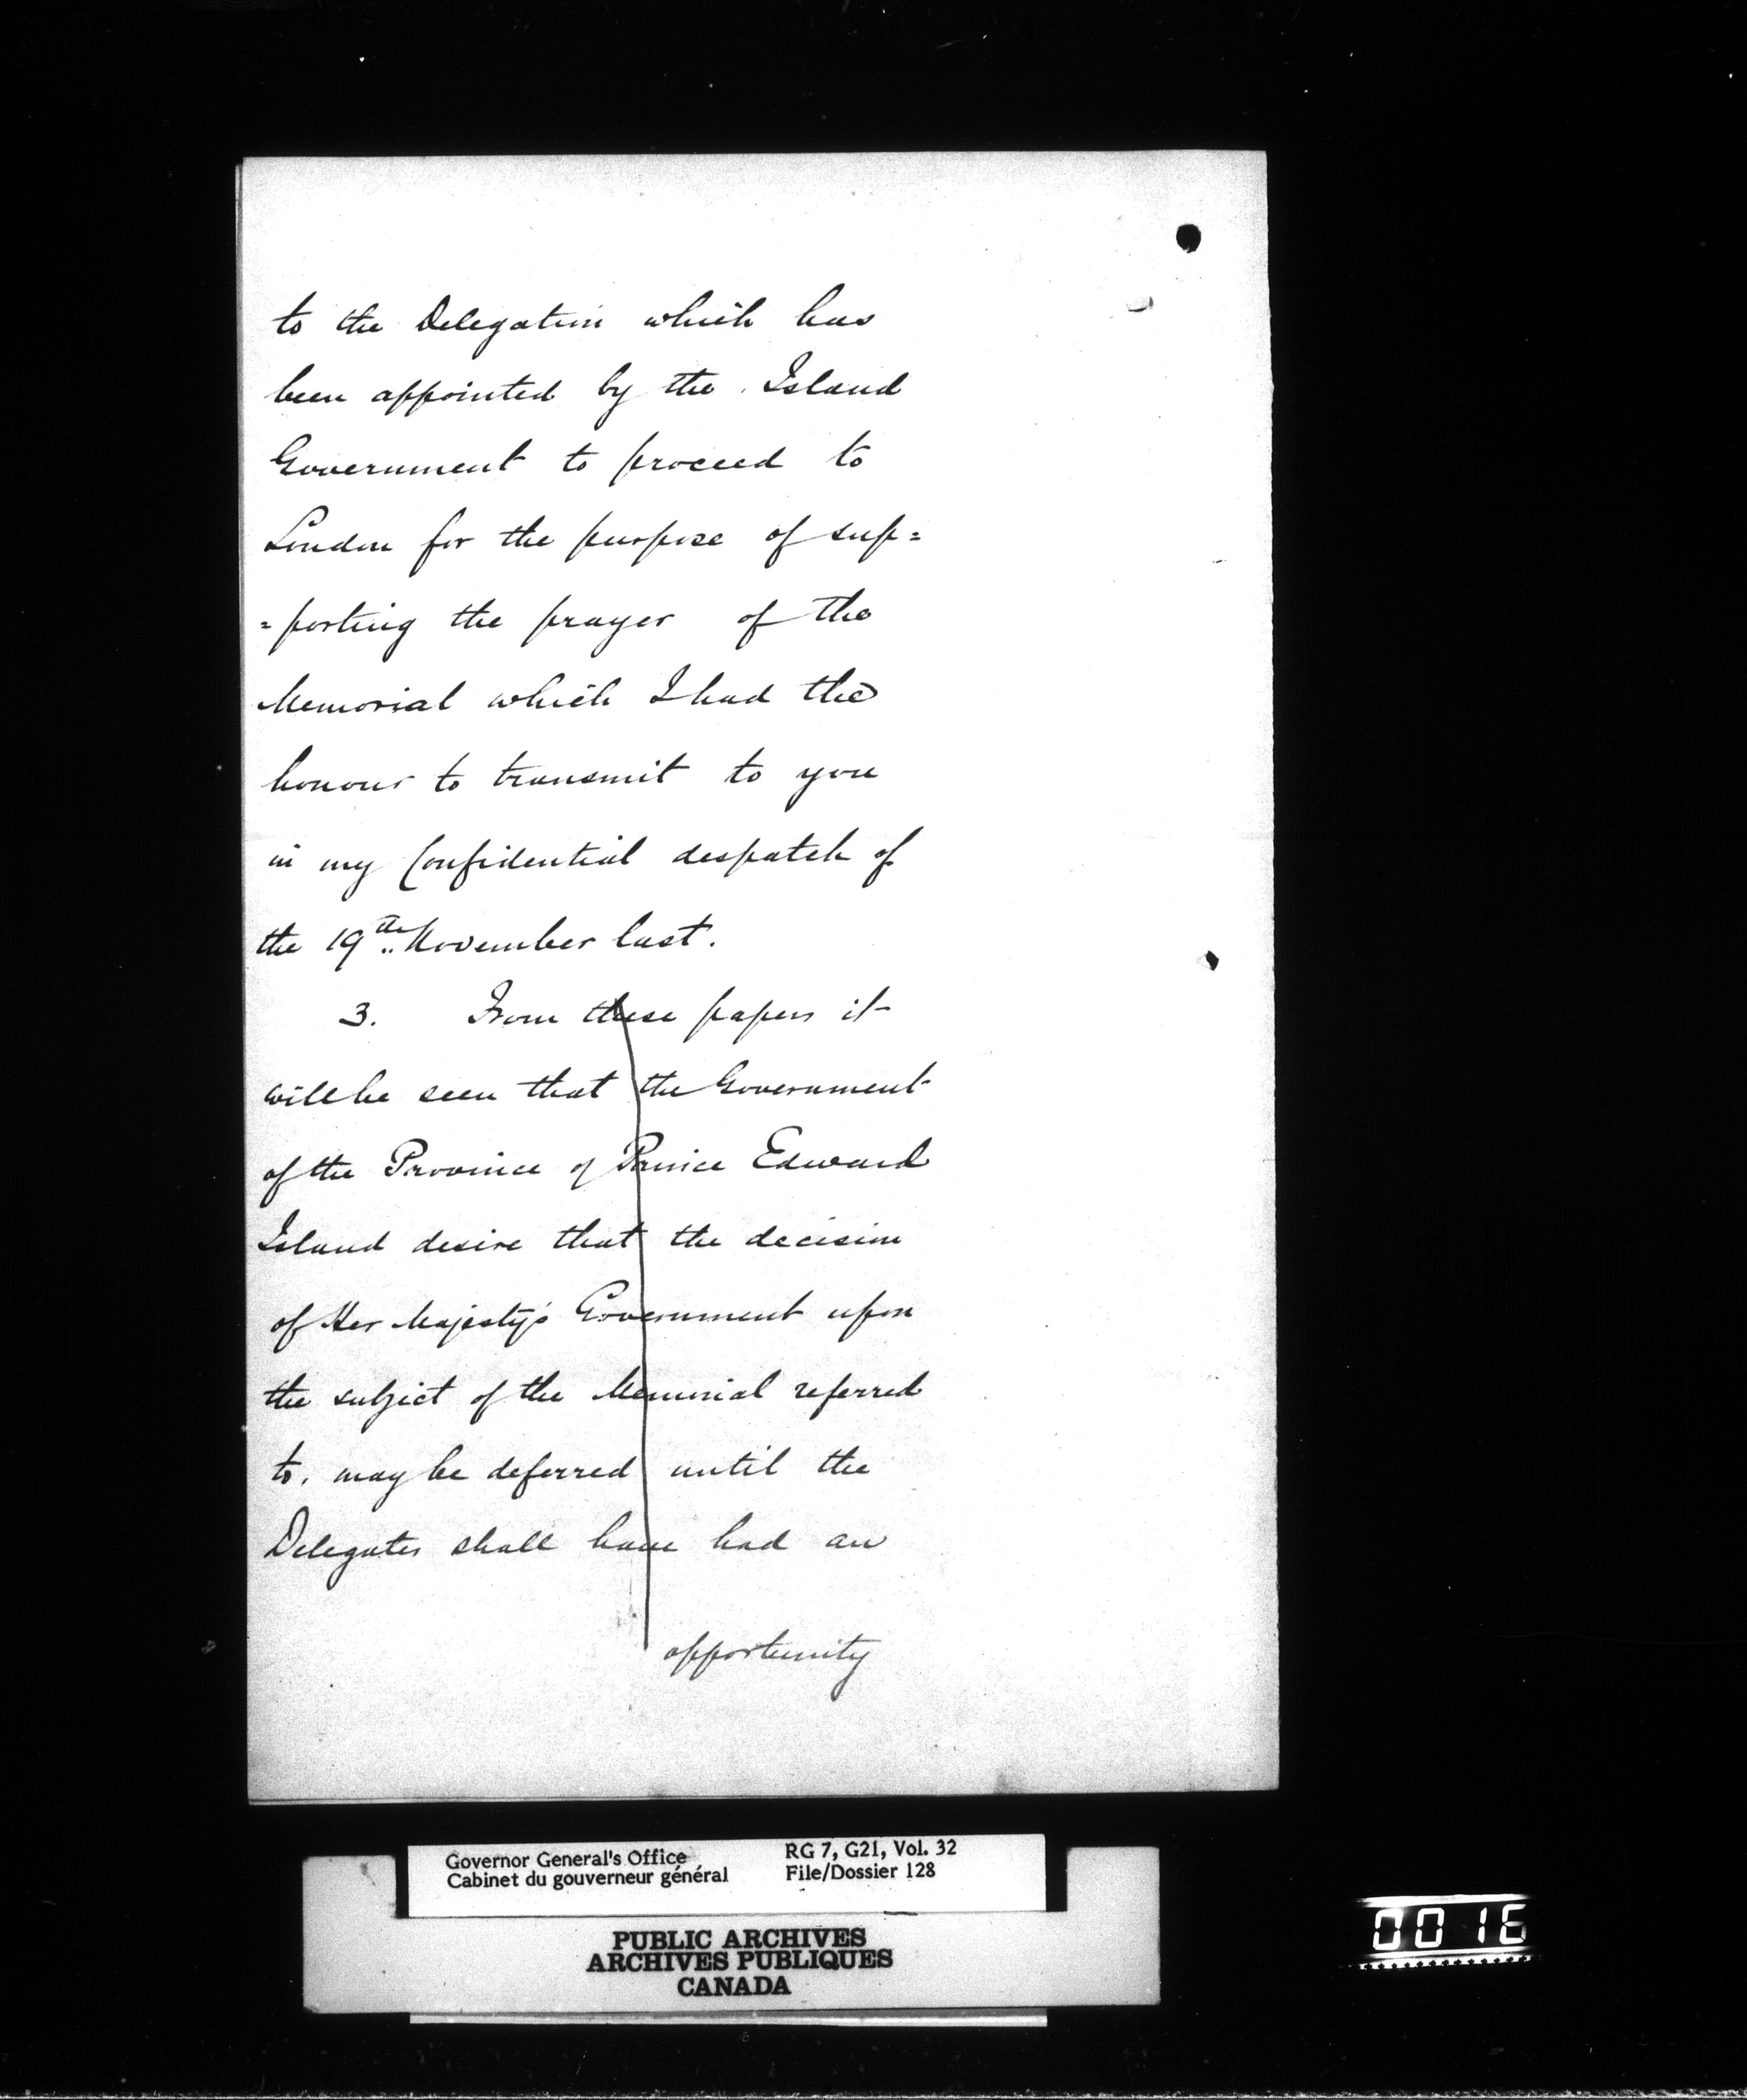 to the Delegation which has
been appointed by the Island
Government to proceed to
London for the purpose of sup=
=porting the prayer of the
Memorial which I had the
honour to transmit to you
in my Confidential despatch of
the 19th November last.
3. From these papers it
will be seen that the Government
of the Province of Prince Edward
Island desire that the decision
of Her Majesty's Government upon
the subject of the Memorial referred
to, may be deferred until the
Delegates shall have had an
opportunity
Governor General's Office
Cabinet du gouverneur général
RG 7, G21, Vol. 32
File/Dossier 128
PUBLIC ARCHIVES
ARCHIVES PUBLIQUES
CANADA
0016